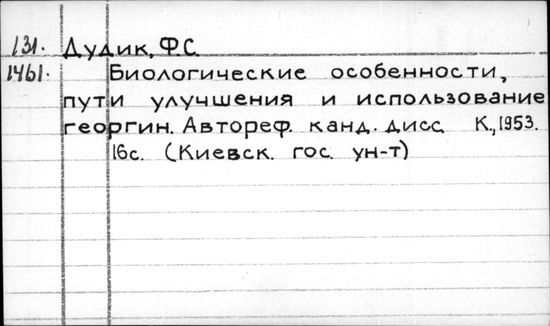 131. Дудик, Ф.С.
1461. Биологические особенности,
пути улучшения и использование
георгин. Автореф. канд. дисс. К., 1953.
16с. (Киевск. гос. ун-т)